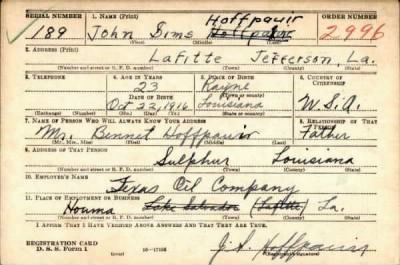 SERIAL NUMBER 1. NAME (Print) ORDER NUMBER
Hoffpauir
189 John Sims 2996
(First) (Middle) (Last)
2. ADDRESS (Print)
Lafitte Jefferson, La.
(Number and street or R. F. D. number) (Town) (County) (State)
3. TELEPHONE 4. AGE IN YEARS 5. PLACE OF BIRTH 6. COUNTRY OF CITIZENSHIP
23 Rayne
DATE OF BIRTH (Town or county)
Oct 22, 1916 Louisiana U.S.A.
(Exchange) (Number) (Mo.) (Day) (Yr.) (State or country)
7. NAME OF PERSON WHO WILL ALWAYS KNOW YOUR ADDRESS 8. RELATIONSHIP OF THAT PERSON
Mr. Bennet Hoffpauir Father
(Mr., Mrs., Miss) (First) (Middle) (Last)
9. ADDRESS OF THAT PERSON
Sulphur Louisiana
(Number and street or R. F. D. number) (Town) (County) (State)
10. EMPLOYER'S NAME
Texas Oil Company
11. PLACE OF EMPLOYMENT OR BUSINESS
Houma Lake Salvador (Lafitte) La.
(Number and street or R. F. D. number) (Town) (County) (State)
I AFFIRM THAT I HAVE VERIFIED ABOVE ANSWERS AND THAT THEY ARE TRUE.
REGISTRATION CARD
D. S. S. Form 1 16-17105 J. S. Hoffpauir